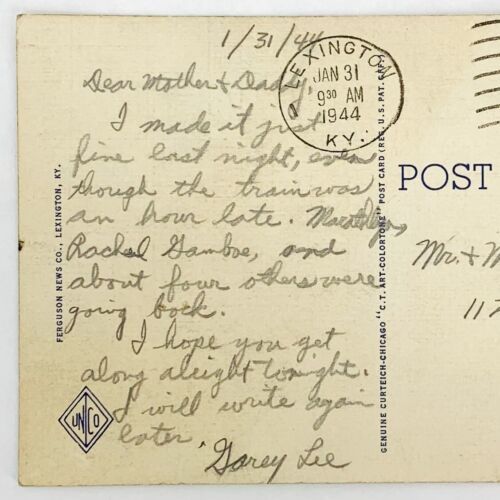 1/31/44
Dear Mother & Daddy,
I made it just
fine last night, even
though the train was
an hour late.
Rachel Gamboe, and
about four others were
going back.
I hope you get
along alright tonight.
I will write again
later.
Garey Lee
LEXINGTON
JAN 31
9 30 AM
1944
KY.
POST
Mr. & M
112
FERGUSON NEWS CO., LEXINGTON, KY.
UNCO
GENUINE CURTEICH-CHICAGO "C.T. ART-COLORTONE" POST CARD (REG. U.S. PAT. OFF.)